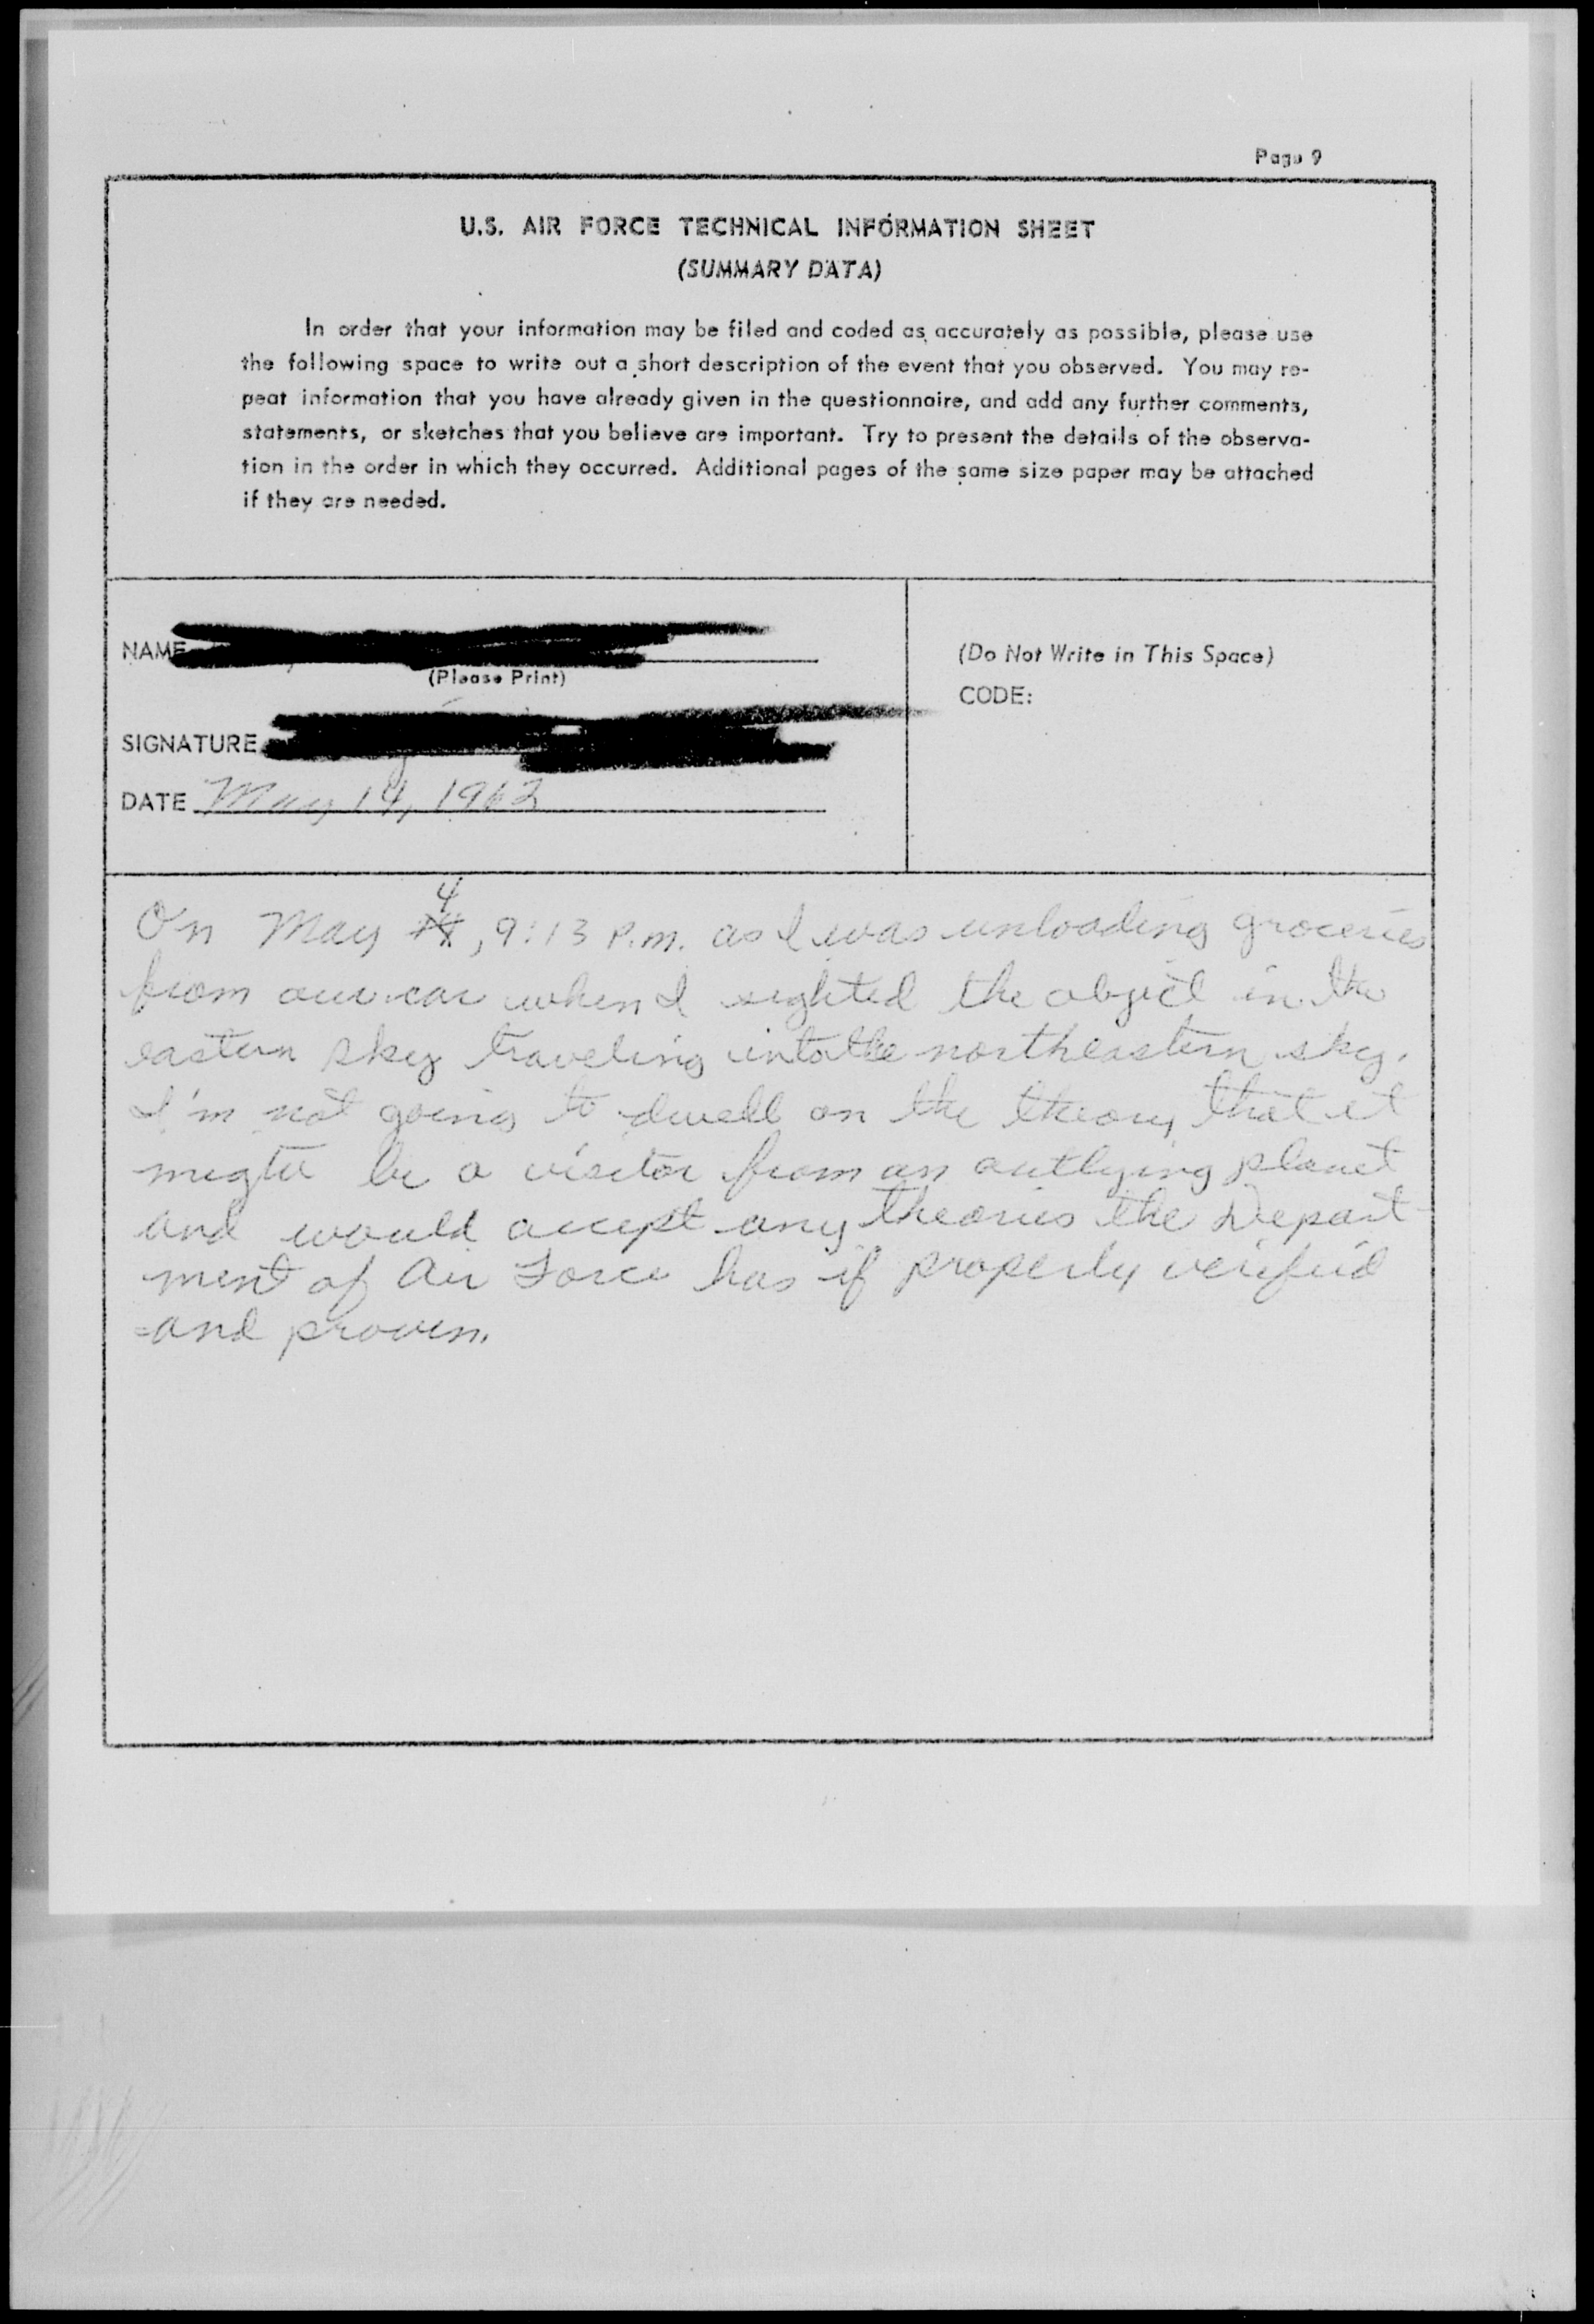 Page 9
U.S. AIR FORCE TECHNICAL INFORMATION SHEET
(SUMMARY DATA)
In order that your information may be filed and coded as accurately as possible, please use
the following space to write out a short description of the event that you observed. You may re-
peat information that you have already given in the questionnaire, and add any further comments,
statements, or sketches that you believe are important. Try to present the details of the observa-
tion in the order in which they occurred. Additional pages of the same size paper may be attached
if they are needed.
NAME
(Please Print)
SIGNATURE
DATE May 14, 1962
(Do Not Write in This Space)
CODE:
4
On May , 9:13 P.m. as I was unloading groceries
from our car when I sighted the object in the
eastern sky traveling into the northeastern sky.
I'm not going to dwell on the theory that it
might be a visitor from an outlying planet
and would accept any theories the Depart-
ment of Air Force has if properly verified
and proven.